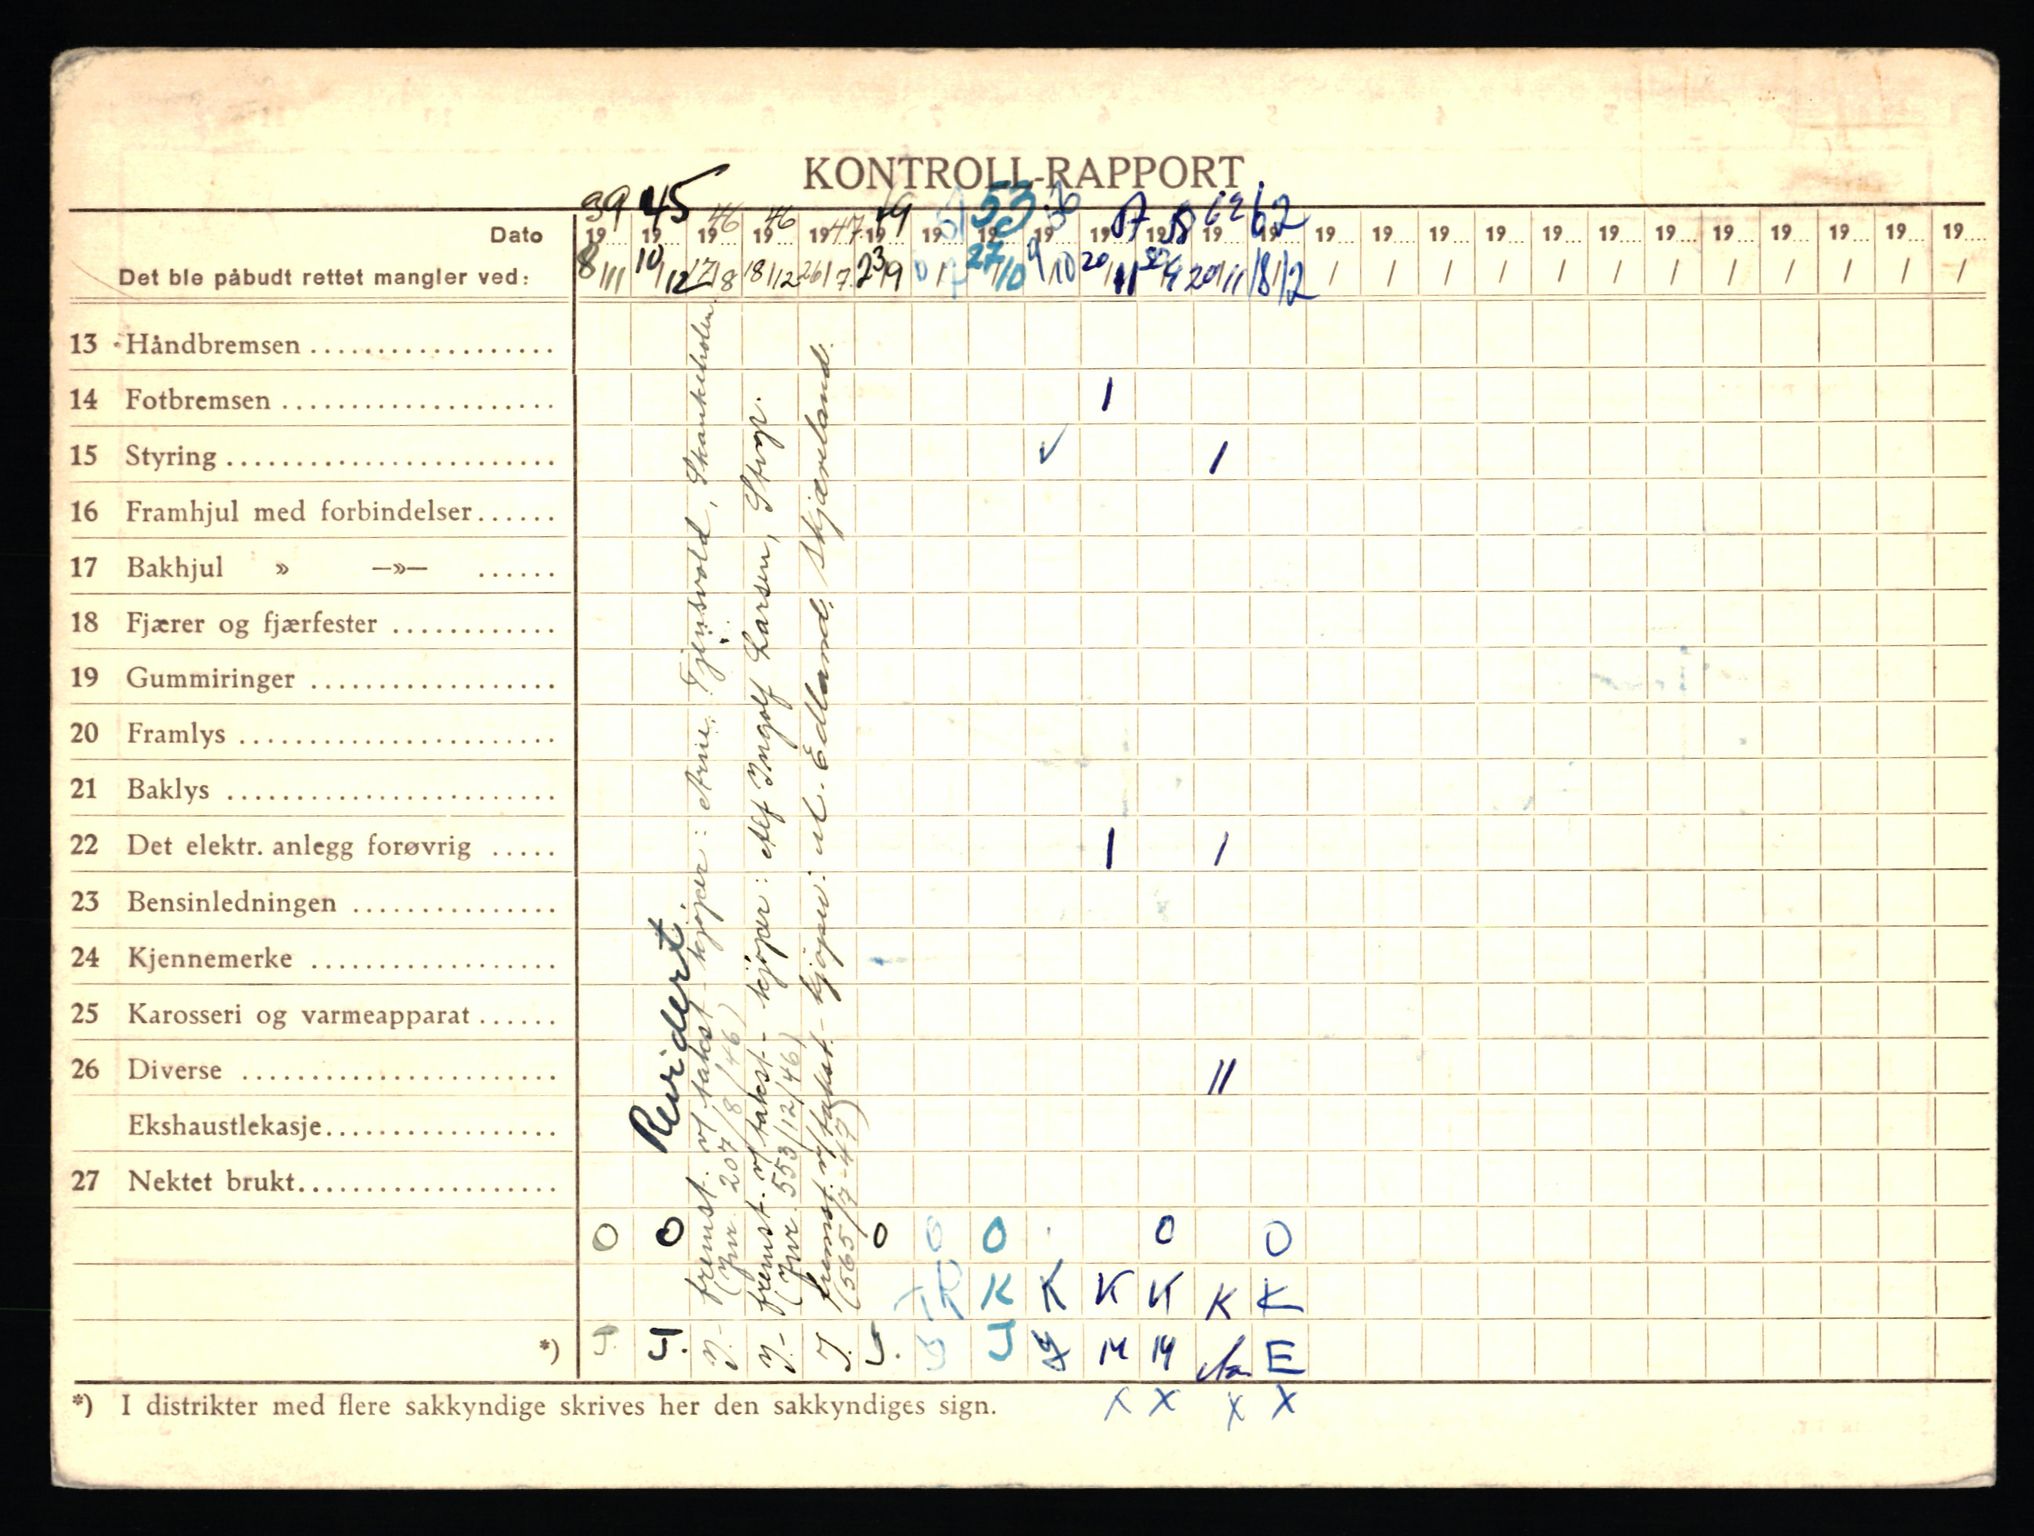 KONTROLL-RAPPORT
39 45 46 46 47 49 53 56 58 62 62
Dato 19 19 19 19 19 19 19 19 19 19 19 19 19 19 19 19 19 19 19 19 19 19 19 19 19
Det ble påbudt rettet mangler ved: 8/11 10/12 17/8 18/12 26/7 23/9 27/10 9/10 20/11 20/11 18/12 / / / / / / / / / / / /
13 Håndbremsen
14 Fotbremsen 1
15 Styring ✓ 1
16 Framhjul med forbindelser
17 Bakhjul » —»—
18 Fjærer og fjærfester
19 Gummiringer
20 Framlys
21 Baklys
22 Det elektr. anlegg forøvrig 1 1
23 Bensinledningen
24 Kjennemerke
25 Karosseri og varmeapparat
26 Diverse 11
Ekshaustlekasje
27 Nektet brukt
Revidert.
fremst. v/ takst - kjøper: Arne Tjensvold,
(Jnr. 207/8/46)
fremst. v/ takst - kjøper: Alf Ingolf Larsen, Stvgr.
(Jnr. 553/12/46)
fremst. v/ takst - kjøper: M. Edland, Skjæveland.
(565/7-47)
O O O O O O O
K K K K K K
*) J. J. J. J. J. J. J E
*) I distrikter med flere sakkyndige skrives her den sakkyndiges sign. X X X X